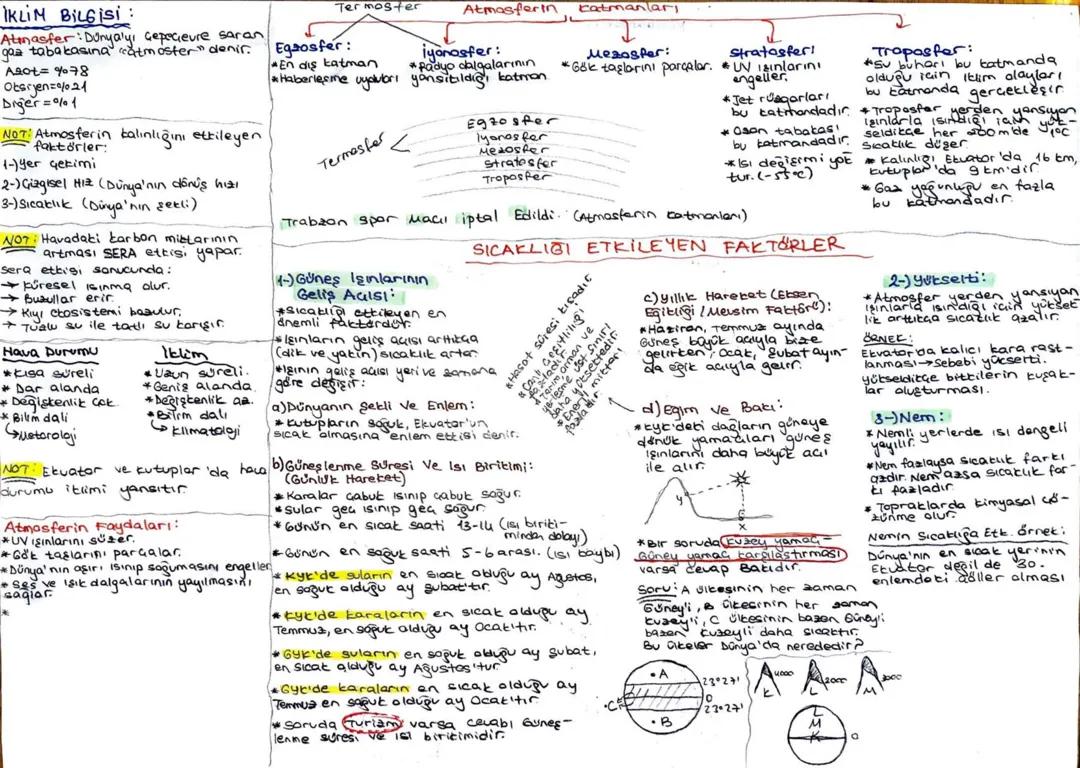 İKLİM BİLGİSİ:
Atmosfer: Dünya'yı çepeçevre saran
gaz tabakasına "atmosfer" denir.
Azot= %78
Oksijen=%21
Diğer = %1
NOT: Atmosferin kalınlığını etkileyen
faktörler:
1-)Yer çekimi
2-)Çizgisel Hız (Dünya'nın dönüş hızı
3-)Sıcaklık (Dünya'nın şekli)
NOT: Havadaki karbon miktarının
artması SERA etkisi yapar.
Sera etkisi sonucunda:
→ Küresel ısınma olur.
→ Buzullar erir.
→ Kıyı ekosistemi bozulur.
→ Tuzlu su ile tatlı su karışır.
Hava Durumu
*Kısa süreli
* Dar alanda
* Değişkenlik çok.
* Bilim dalı
↳Metoroloji
İklim
*Uzun süreli.
*Geniş alanda
*Değişkenlik az.
*Bilim dalı
↳Klimatoloji
NOT: Ekvator ve kutuplar'da hava
durumu iklimi yansıtır.
Atmosferin Faydaları:
*UV ışınlarını süzer.
*Gök taşlarını parçalar.
*Dünya'nın aşırı ısınıp soğumasını engeller
* Ses ve ışık dalgalarının yayılmasını
sağlar.
*
Termosfer
Atmosferin Katmanları
Egzosfer:
*En dış katman
*Haberleşme uyduları
İyonosfer:
*Radyo dalgalarının
yansıtıldığı katman.
Mezosfer:
*Gök taşlarını parçalar.
Stratosfer:
* UV ışınlarını
engeller.
*Jet rüzgarları
bu katmandadır.
*Ozon tabakası
bu katmandadır.
*Isı değişimi yok
tur. (-55°C)
Troposfer:
*Su buharı bu katmanda
olduğu için iklim olayları
bu katmanda gerçekleşir.
*Troposfer yerden yansıyan
ışınlarla ısındığı için yük-
seldikçe her 200 m'de 1°C
sıcaklık düşer.
* Kalınlığı Ekvator'da 16 km,
kutuplar'da 9 km'dir.
* Gaz yoğunluğu en fazla
bu katmandadır.
Termosfer <
Egzosfer
İyonosfer
Mezosfer
Stratosfer
Troposfer
Trabzon Spor Maçı İptal Edildi. (Atmosferin katmanları)
SICAKLIĞI ETKİLEYEN FAKTÖRLER
1-)Güneş Işınlarının
Geliş Açısı:
*Sıcaklığı etkileyen en
önemli faktördür.
*Işınların geliş açısı arttıkça
(dik ve yakın) sıcaklık artar.
*Işının geliş açısı yeri ve zamana
göre değişir:
a)Dünyanın Şekli Ve Enlem:
* Kutupların soğuk, Ekvator'un
sıcak olmasına enlem etkisi denir.
b)Güneşlenme Süresi Ve Isı Birikimi:
(Günlük Hareket)
* Karalar çabuk ısınıp çabuk soğur.
*Sular geç ısınıp geç soğur.
* Günün en sıcak saati 13-14 (ısı biriki-
minden dolayı)
*Günün en soğuk saati 5-6 arası. (ısı kaybı)
* KYK'de suların en sıcak olduğu ay Ağustos,
en soğuk olduğu ay Şubat'tır.
*KYK'de karaların en sıcak olduğu ay
Temmuz, en soğuk olduğu ay Ocak'tır.
*GYK'de suların en soğuk olduğu ay Şubat,
en sıcak olduğu ay Ağustos'tur
*GYK'de karaların en sıcak olduğu ay
Temmuz en soğuk olduğu ay Ocak'tır.
*Soruda Turizm varsa cevabı Güneş-
lenme süresi ve ısı birikimidir.
*Hasat süresi kısadır.
*Canlı çeşitliliği
fazladır.
*Tarım orman ve
yerleşme üst sınırı
daha yüksektedir.
*Enerji miktarı
fazladır
c)Yıllık Hareket (Eksen
Eğikliği / Mevsim Faktörü):
*Haziran, Temmuz ayında
Güneş büyük açıyla bize
gelirken, Ocak, Şubat ayın-
da eğik açıyla gelir.
d) Eğim ve Bakı:
*KYK'deki dağların güneye
dönük yamaçları güneş
ışınlarını daha büyük açı
ile alır.
y
G
x
*Bir soruda Kuzey yamaç-
Güney yamaç karşılaştırması
varsa cevap Bakıdır.
Soru: A ülkesinin her zaman
Güney'i, B ülkesinin her zaman
Kuzey'i, C ülkesinin bazen Güney'i
bazen Kuzey'i daha sıcaktır.
Bu ülkeler Dünya'da nerededir?
•A
23°27'
•C
0
23°27'
•B
2-)Yükselti:
*Atmosfer yerden yansıyan
ışınlarla ısındığı için yüksek
lik arttıkça sıcaklık azalır.
ÖRNEK:
Ekvator'da kalıcı kara rast-
lanması→Sebebi yükselti.
yükseldikçe bitkilerin kuşak-
lar oluşturması.
3-)Nem:
* Nemli yerlerde ısı dengeli
yayılır.
*Nem fazlaysa sıcaklık farkı
azdır. Nem azsa sıcaklık far-
kı fazladır.
*Topraklarda kimyasal çö-
zünme olur.
Nemin Sıcaklığa Etk. Örnek:
Dünya'nın en sıcak yerinin
Ekvator değil de 30.
enlemdeki çöller olması
4000
K
2000
L
3000
M
L
M
K
0